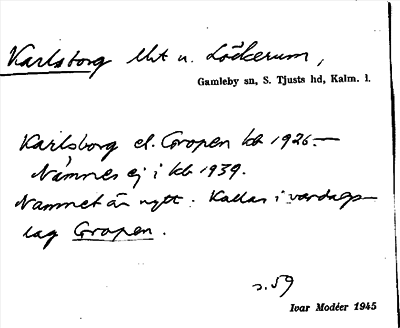 Karlsborg lht u. Löckerum,
Gamleby sn, S. Tjusts hd, Kalm. l.
Karlsborg el. Gropen kb 1926.—
Nämnes ej i kb 1939.
Namnet är nytt. Kallas i vardags-
lag Gropen.
s. 59
Ivar Modéer 1945